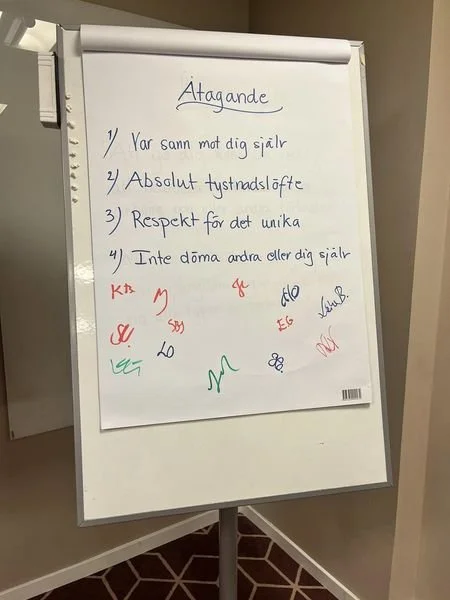 Åtagande
1) Var sann mot dig själv
2) Absolut tystnadslöfte
3) Respekt för det unika
4) Inte döma andra eller dig själv
KB
EG
LO